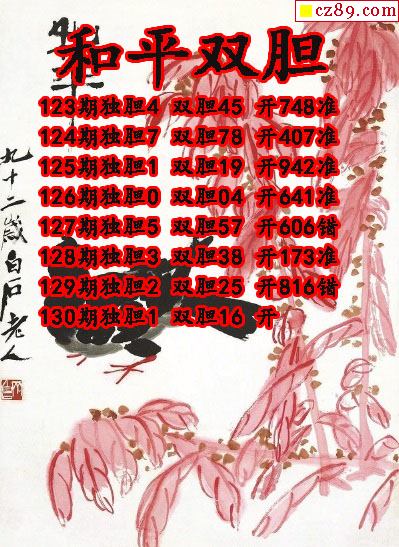 cz89.com
和平双胆
123期独胆4 双胆45 开748准
124期独胆7 双胆78 开407准
125期独胆1 双胆19 开942准
126期独胆0 双胆04 开641准
127期独胆5 双胆57 开606错
128期独胆3 双胆38 开173准
129期独胆2 双胆25 开816错
130期独胆1 双胆16 开
九十二岁白石老人